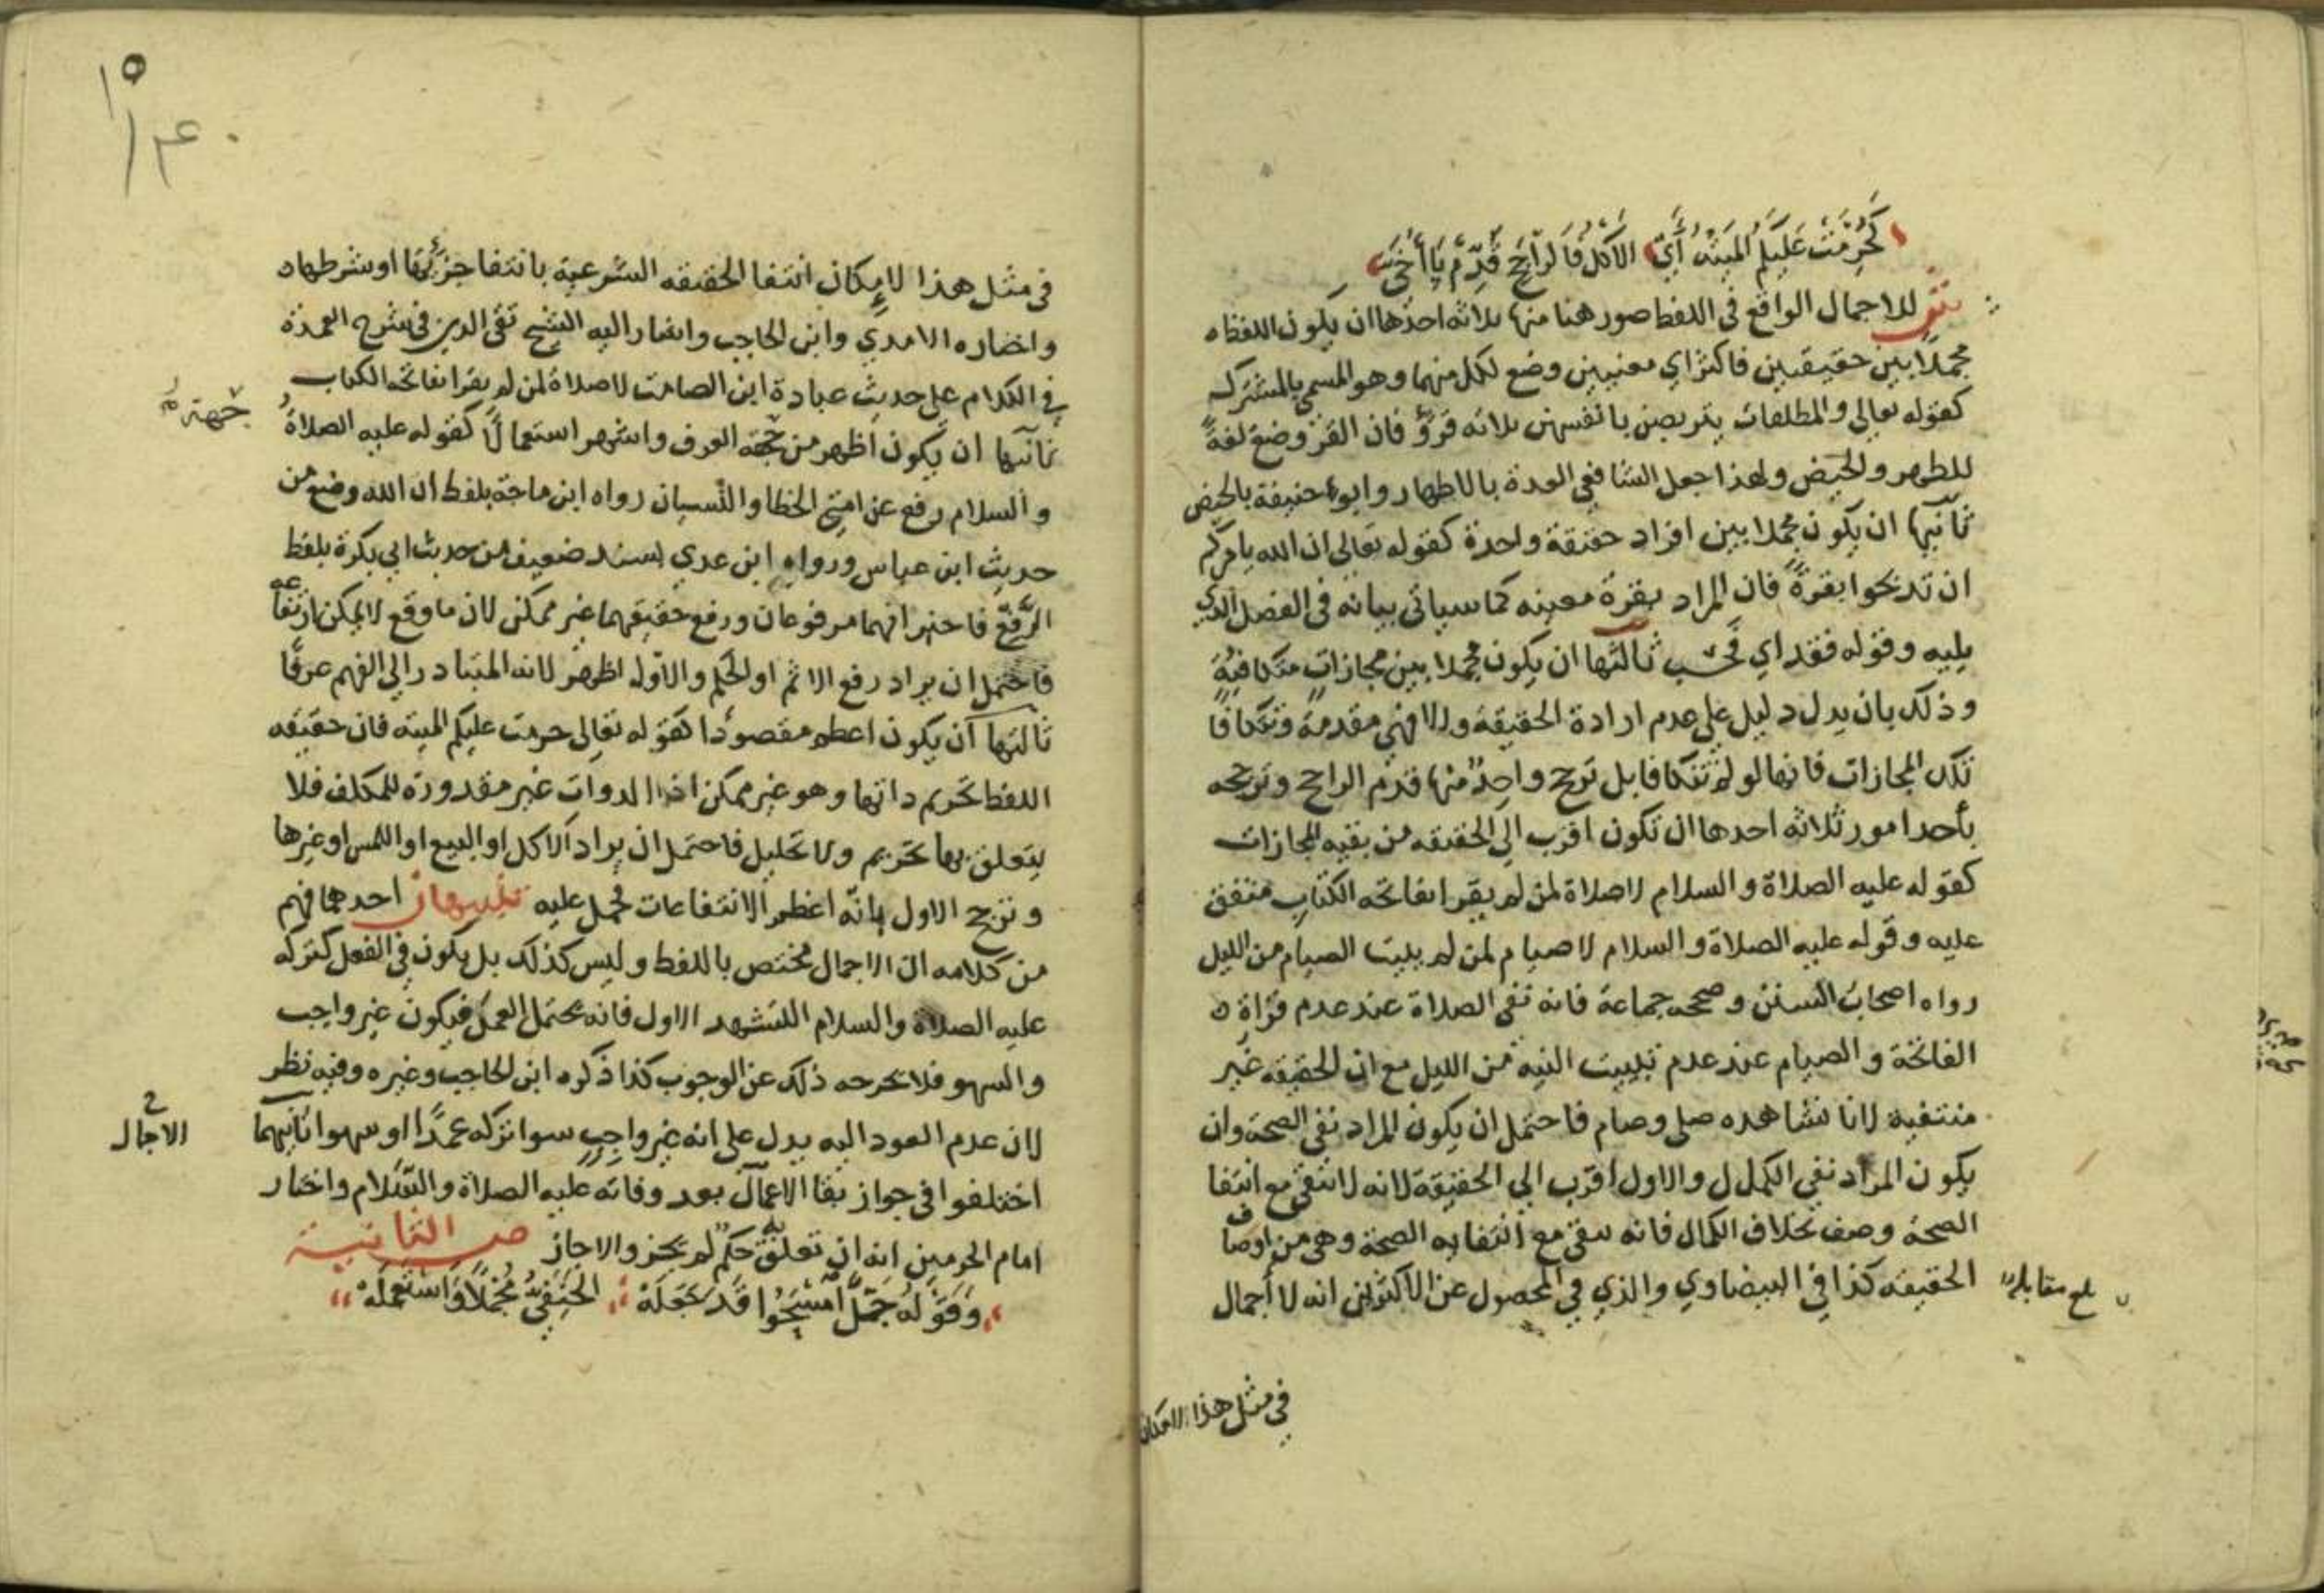 كَحُرِّمَتْ عَلَيْكُمُ الْمَيْتَةُ أَيِ الأَكْلُ فَالرَّاجِحَ قَدِّمْ يَا أُخَيَّ
ش للاجمال الواقع في اللفظ صور هنا منها ثلاثة احدها ان يكون اللفظ
مجملا بين حقيقتين فاكثر اي معنيين وضع لكل منهما وهو المسمي بالمشترك
كقوله تعالي والمطلقات يتربصن بانفسهن ثلاثه قروٓء فان القرء وضع لغةً
للطهر والحيض ولهذا جعل الشافعي العدة بالاطهار وابو حنيفة بالحيض
ثانيها ان يكون مجملا بين افراد حقيقة واحدة كقوله تعالي ان الله يامركم
ان تذبحوا بقرةً فان المراد بقرة معينه كما سياتي بيانه في الفصل الذي
يليه وقوله فقد اي فحسب ثالثها ان يكون مجملا بين مجازات متكافيةً
وذلك بان يدل دليل علي عدم ارادة الحقيقة والا فهي مقدمة وتتكافا
تلك المجازات فانها لو لم تتكافا بل ترجح واحدٌ منها قدم الراجح وترجحه
بأحد امور ثلاثه احدها ان تكون اقرب الي الحقيقه من بقيه المجازات
كقوله عليه الصلاة والسلام لا صلاة لمن لم يقرا بفاتحه الكتاب متفق
عليه وقوله عليه الصلاة والسلام لا صيام لمن لم يبيت الصيام من الليل
رواه اصحاب السنن وصححه جماعة فانه نفي الصلاة عند عدم قراة
الفاتحة والصيام عند عدم تبييت النيه من الليل مع ان الحقيقه غير
منتفية لانا نشاهده صلي وصام فاحتمل ان يكون المراد نفي الصحة وان
يكون المراد نفي الكمال والاول اقرب الي الحقيقة لانه لا يبقي مع انتفا
الصحة وصف بخلاف الكمال فانه يبقي مع انتفايه الصحة وهي من اوصاف
الحقيقه كذا في البيضاوي والذي في المحصول عن الاكثرين انه لا اجمال
بلغ مقابلة
في مثل هذا لامكان
١٥
١٤٠
في مثل هذا لامكان انتفا الحقيقه الشرعية بانتفا جزئها او شرطها
واختاره الامدي وابن الحاجب واشار اليه الشيخ تقي الدين في شرح العمدة
في الكلام علي حديث عبادة ابن الصامت لا صلاة لمن لم يقرا بفاتحه الكتاب
ثانيها ان يكون اظهر من جهة العرف واشهر استعمالًا كقوله عليه الصلاةُ
جهة
والسلام رفع عن امتي الخطا والنسيان رواه ابن ماجة بلفظ ان الله وضع من
حديث ابن عباس ورواه ابن عدي بسند ضعيف من حديث ابي بكرة بلفظ
الرفع فاخبر انهما مرفوعان ورفع حقيقتهما غير ممكن لان ما وقع لا يمكن ارتفاعه
فاحتمل ان يراد رفع الاثم او الحكم والاول اظهر لانه المتبادر الي الفهم عرفًا
ثالثها ان يكون اعظم مقصودا كقوله تعالي حرمت عليكم الميتة فان حقيقه
اللفظ تحريم ذاتها وهو غير ممكن اذ الذوات غير مقدورة للمكلف فلا
يتعلق بها تحريم ولا تحليل فاحتمل ان يراد الاكل او البيع او اللمس او غيرها
وترجح الاول بانه اعظم الانتفاعات فحمل عليه تنبيهان احدهما فهم
من كلامه ان الاجمال مختص باللفظ وليس كذلك بل يكون في الفعل كتركه
عليه الصلاة والسلام التشهد الاول فانه يحتمل العمد فيكون غير واجب
والسهو فلا يخرجه ذلك عن الوجوب كذا ذكره ابن الحاجب وغيره وفيه نظر
لان عدم العود اليه يدل علي انه غير واجب سوا تركه عمدًا او سهوا ثانيهما
اختلفوا في جواز بقا الاعمال بعد وفاته عليه الصلاة والسلام واختار
الاجمال
امام الحرمين انه ان تعلق به حكم لم يجز والا جاز ص الثانية
وَقَوْلُهُ جَلَّ امْسَحُوا قَدْ جَعَلَهْ الحَنَفِيُّ مُجْمَلًا وَاسْتَعْمَلَهْ